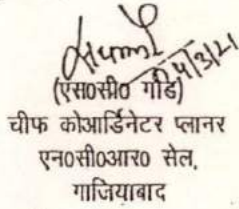 04/3/21
(एस०सी० गौड)
चीफ कोआर्डिनेटर प्लानर
एन०सी०आर० सेल,
गाजियाबाद